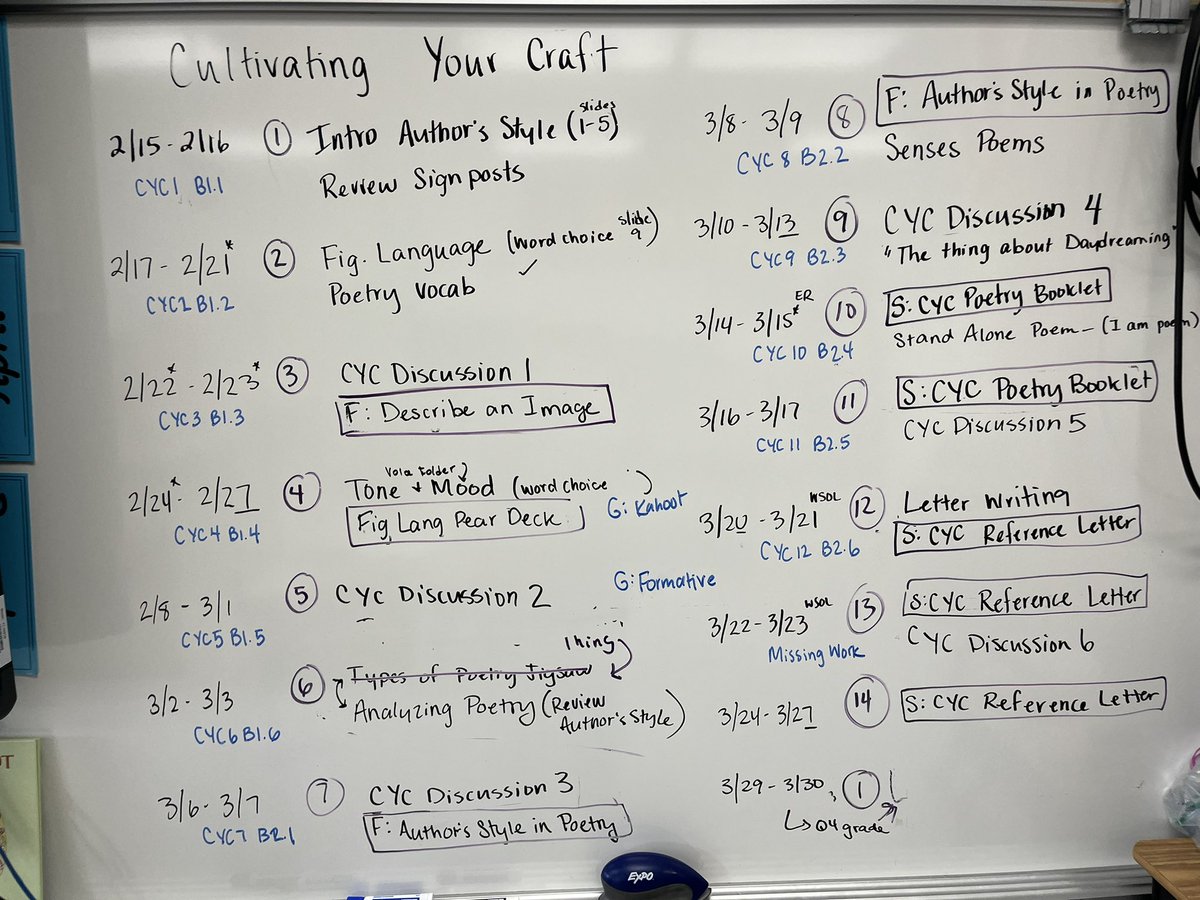 Cultivating Your Craft
2/15 - 2/16 ① Intro Author's Style (slides 1-5)
Review Signposts
CYC1 B1.1
2/17 - 2/21* ② Fig. Language (word choice slide 9)
Poetry Vocab ✓
CYC2 B1.2
2/22* - 2/23* ③ CYC Discussion 1
F: Describe an Image
CYC3 B1.3
Vola folder
2/24* - 2/27 ④ Tone + Mood (word choice )
Fig Lang Pear Deck
G: Kahoot
CYC4 B1.4
G: Formative
2/8 - 3/1 ⑤ CYC Discussion 2
CYC5 B1.5
1 thing
3/2 - 3/3 ⑥ Types of Poetry Jigsaw
Analyzing Poetry (Review Author's Style)
CYC6 B1.6
3/6 - 3/7 ⑦ CYC Discussion 3
F: Author's Style in Poetry
CYC7 B2.1
3/8 - 3/9 ⑧ F: Author's Style in Poetry
Senses Poems
CYC 8 B2.2
3/10 - 3/13 ⑨ CYC Discussion 4
"The thing about Daydreaming"
CYC9 B2.3
3/14 - 3/15* ER ⑩ S: CYC Poetry Booklet
Stand Alone Poem - (I am poem)
CYC 10 B2.4
3/16 - 3/17 ⑪ S: CYC Poetry Booklet
CYC Discussion 5
CYC 11 B2.5
3/20 - 3/21 WSOL ⑫ Letter Writing
S: CYC Reference Letter
CYC12 B2.6
3/22 - 3/23 WSOL ⑬ S: CYC Reference Letter
CYC Discussion 6
Missing Work
3/24 - 3/27 ⑭ S: CYC Reference Letter
3/29 - 3/30 ①
↳ Q4 grade
EXPO